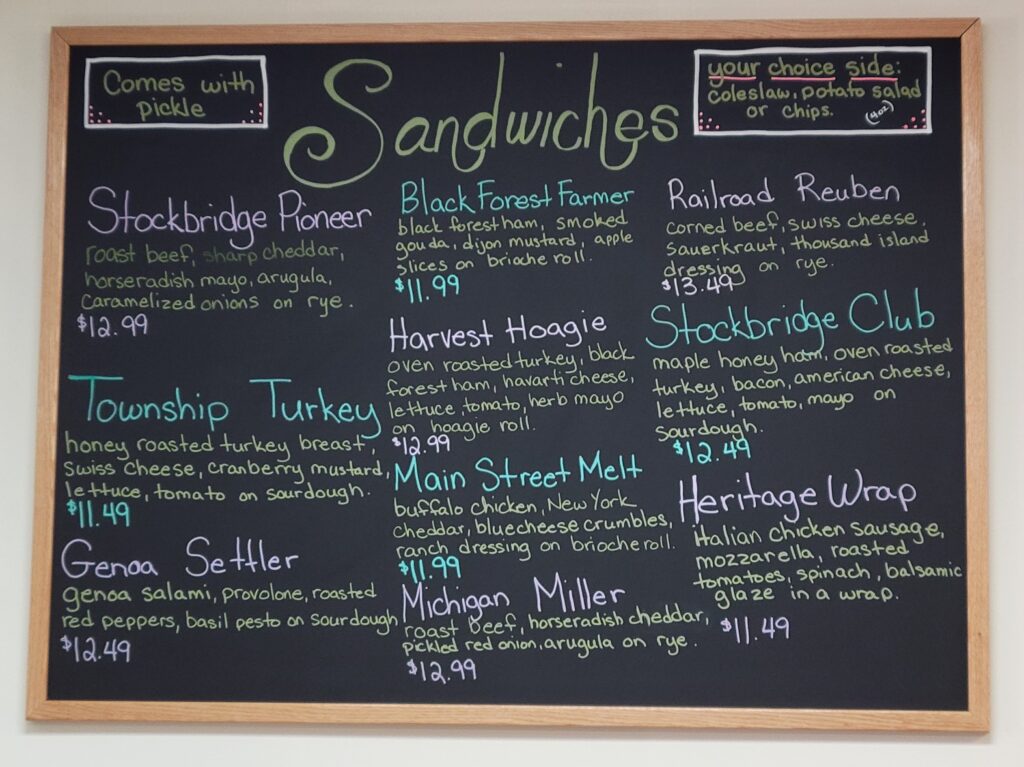 Comes with
pickle
Sandwiches
your choice side:
coleslaw, potato salad
or chips. (4oz)
Stockbridge Pioneer
roast beef, sharp cheddar,
horseradish mayo, arugula,
caramelized onions on rye.
$12.99
Township Turkey
honey roasted turkey breast,
swiss cheese, cranberry mustard,
lettuce, tomato on sourdough.
$11.49
Genoa Settler
genoa salami, provolone, roasted
red peppers, basil pesto on sourdough
$12.49
Black Forest Farmer
black forest ham, smoked
gouda, dijon mustard, apple
slices on brioche roll.
$11.99
Harvest Hoagie
oven roasted turkey, black
forest ham, havarti cheese,
lettuce, tomato, herb mayo
on hoagie roll.
$12.99
Main Street Melt
buffalo chicken, New York
cheddar, bluecheese crumbles,
ranch dressing on brioche roll.
$11.99
Michigan Miller
roast beef, horseradish cheddar,
pickled red onion, arugula on rye.
$12.99
Railroad Reuben
corned beef, swiss cheese,
sauerkraut, thousand island
dressing on rye.
$13.49
Stockbridge Club
maple honey ham, oven roasted
turkey, bacon, american cheese,
lettuce, tomato, mayo on
sourdough.
$12.49
Heritage Wrap
italian chicken sausage,
mozzarella, roasted
tomatoes, spinach, balsamic
glaze in a wrap.
$11.49